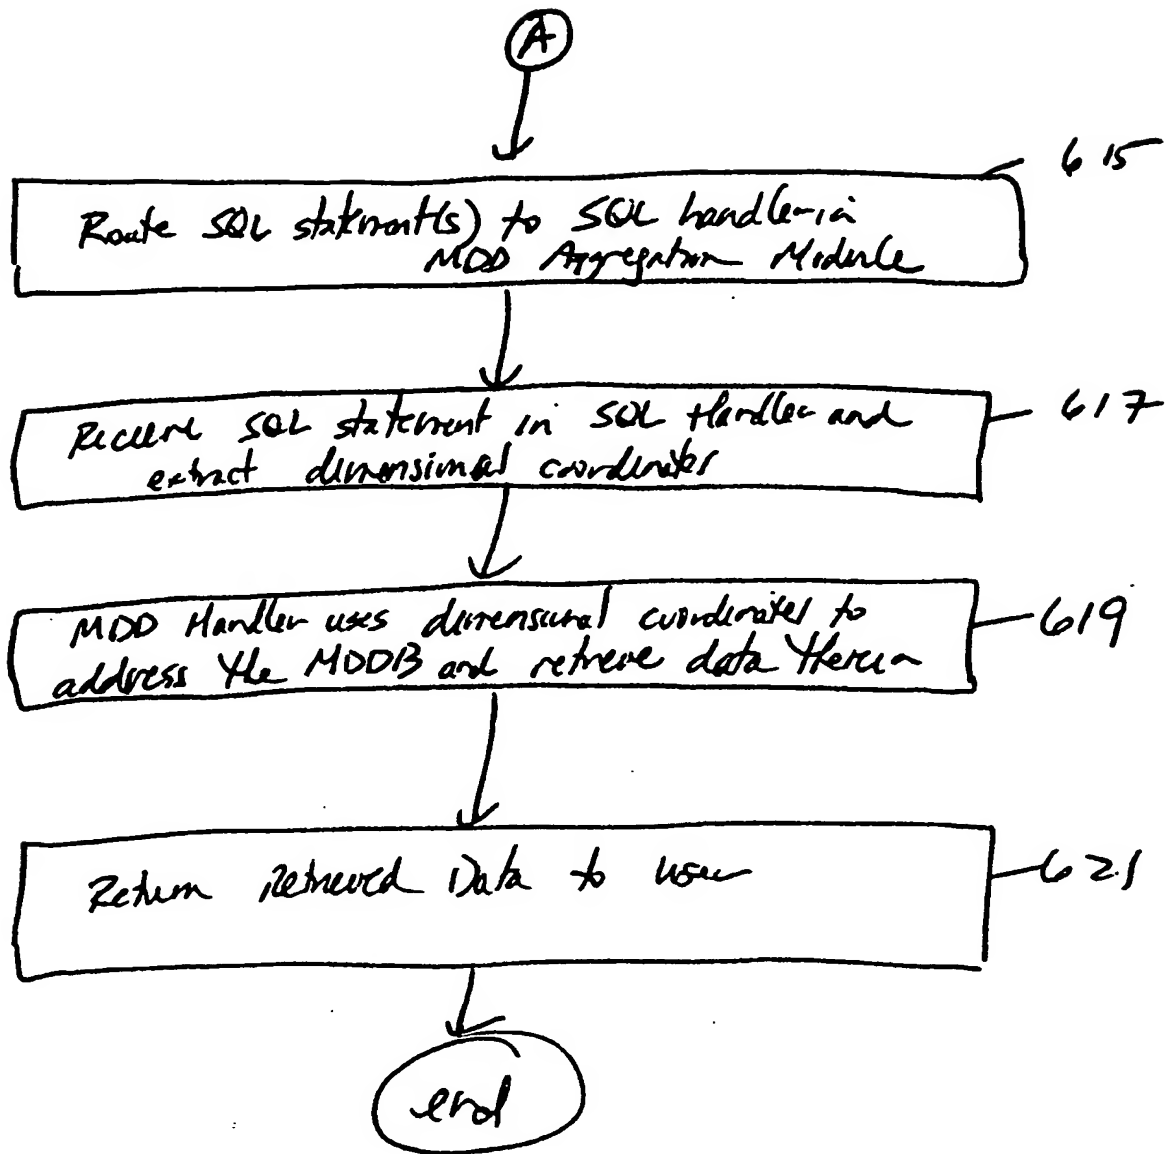 A
615
Route SQL statement(s) to SQL handler in
MDD Aggregation Module
617
Receive SQL statement in SQL Handler and
extract dimensional coordinates
MDD Handler uses dimensional coordinates to
619
address the MDDB and retrieve data therein
Return Retrieved Data to user
621
end